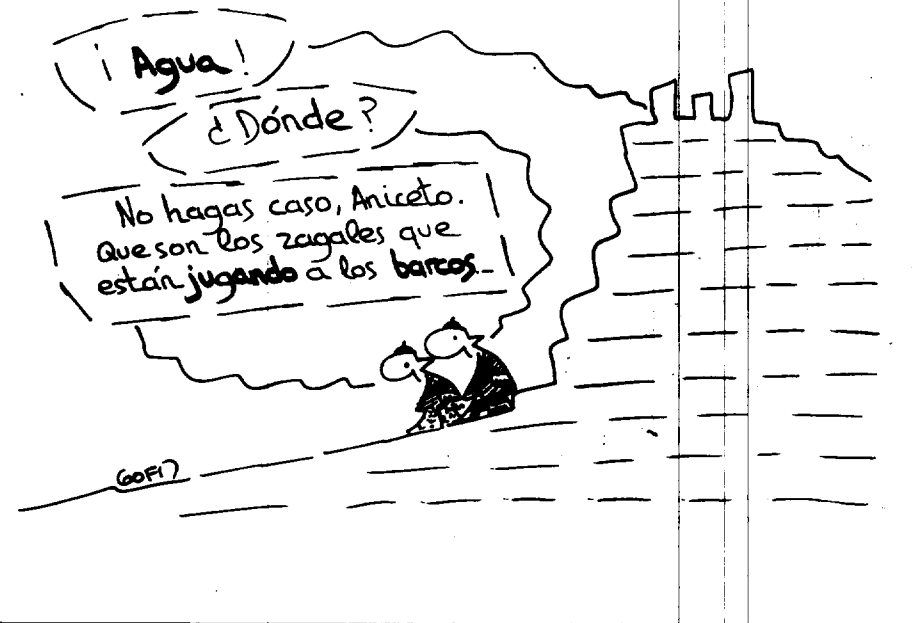 ¡Agua!
¿Dónde?
No hagas caso, Aniceto.
Que son los zagales que
están jugando a los barcos_
GOFI7